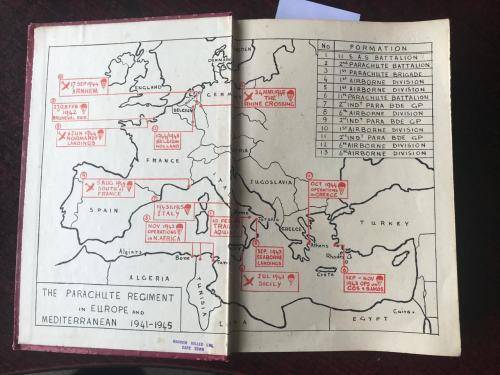 ENGLAND
17 SEP 1944
ARNHEM
27/28 FEB
1942
BRUNEVAL RAID
6 JUN 1944
NORMANDY
LANDINGS
BELGIUM
HOLLAND
BELGIUM
FRANCE
5 AUG 1944
SOUTH of
FRANCE
SPAIN
1943/1945
ITALY
NOV 1942
OPERATIONS
in N. AFRICA
Algiers
Bone
ALGERIA
TUNISIA
THE PARACHUTE REGIMENT
IN EUROPE AND
MEDITERRANEAN 1941-1945
DENMARK
24 MAR 1945
THE
RHINE CROSSING
YUGOSLAVIA
OCT 1944
OPERATIONS
in GREECE
GREECE
Athens
TURKEY
Taranto
SEP. 1943
SEABORNE
LANDINGS
JUL 1943
SICILY
Rhodes
Crete
SEP - NOV
1943 OPS on
COS & SAMOS
Cairo
EGYPT
No FORMATION
1 11 S.A.S. BATTALION
2 2nd PARACHUTE BATTALION
3 1st PARACHUTE BRIGADE
4 1st AIRBORNE DIVISION
5 1st AIRBORNE DIVISION
6 11th PARACHUTE BATTALION
7 2nd INDt PARA BDE GP
8 6th AIRBORNE DIVISION
9 2nd INDt PARA BDE GP
10 1st AIRBORNE DIVISION
11 2nd INDt PARA BDE GP
12 6th AIRBORNE DIVISION
13 6th AIRBORNE DIVISION